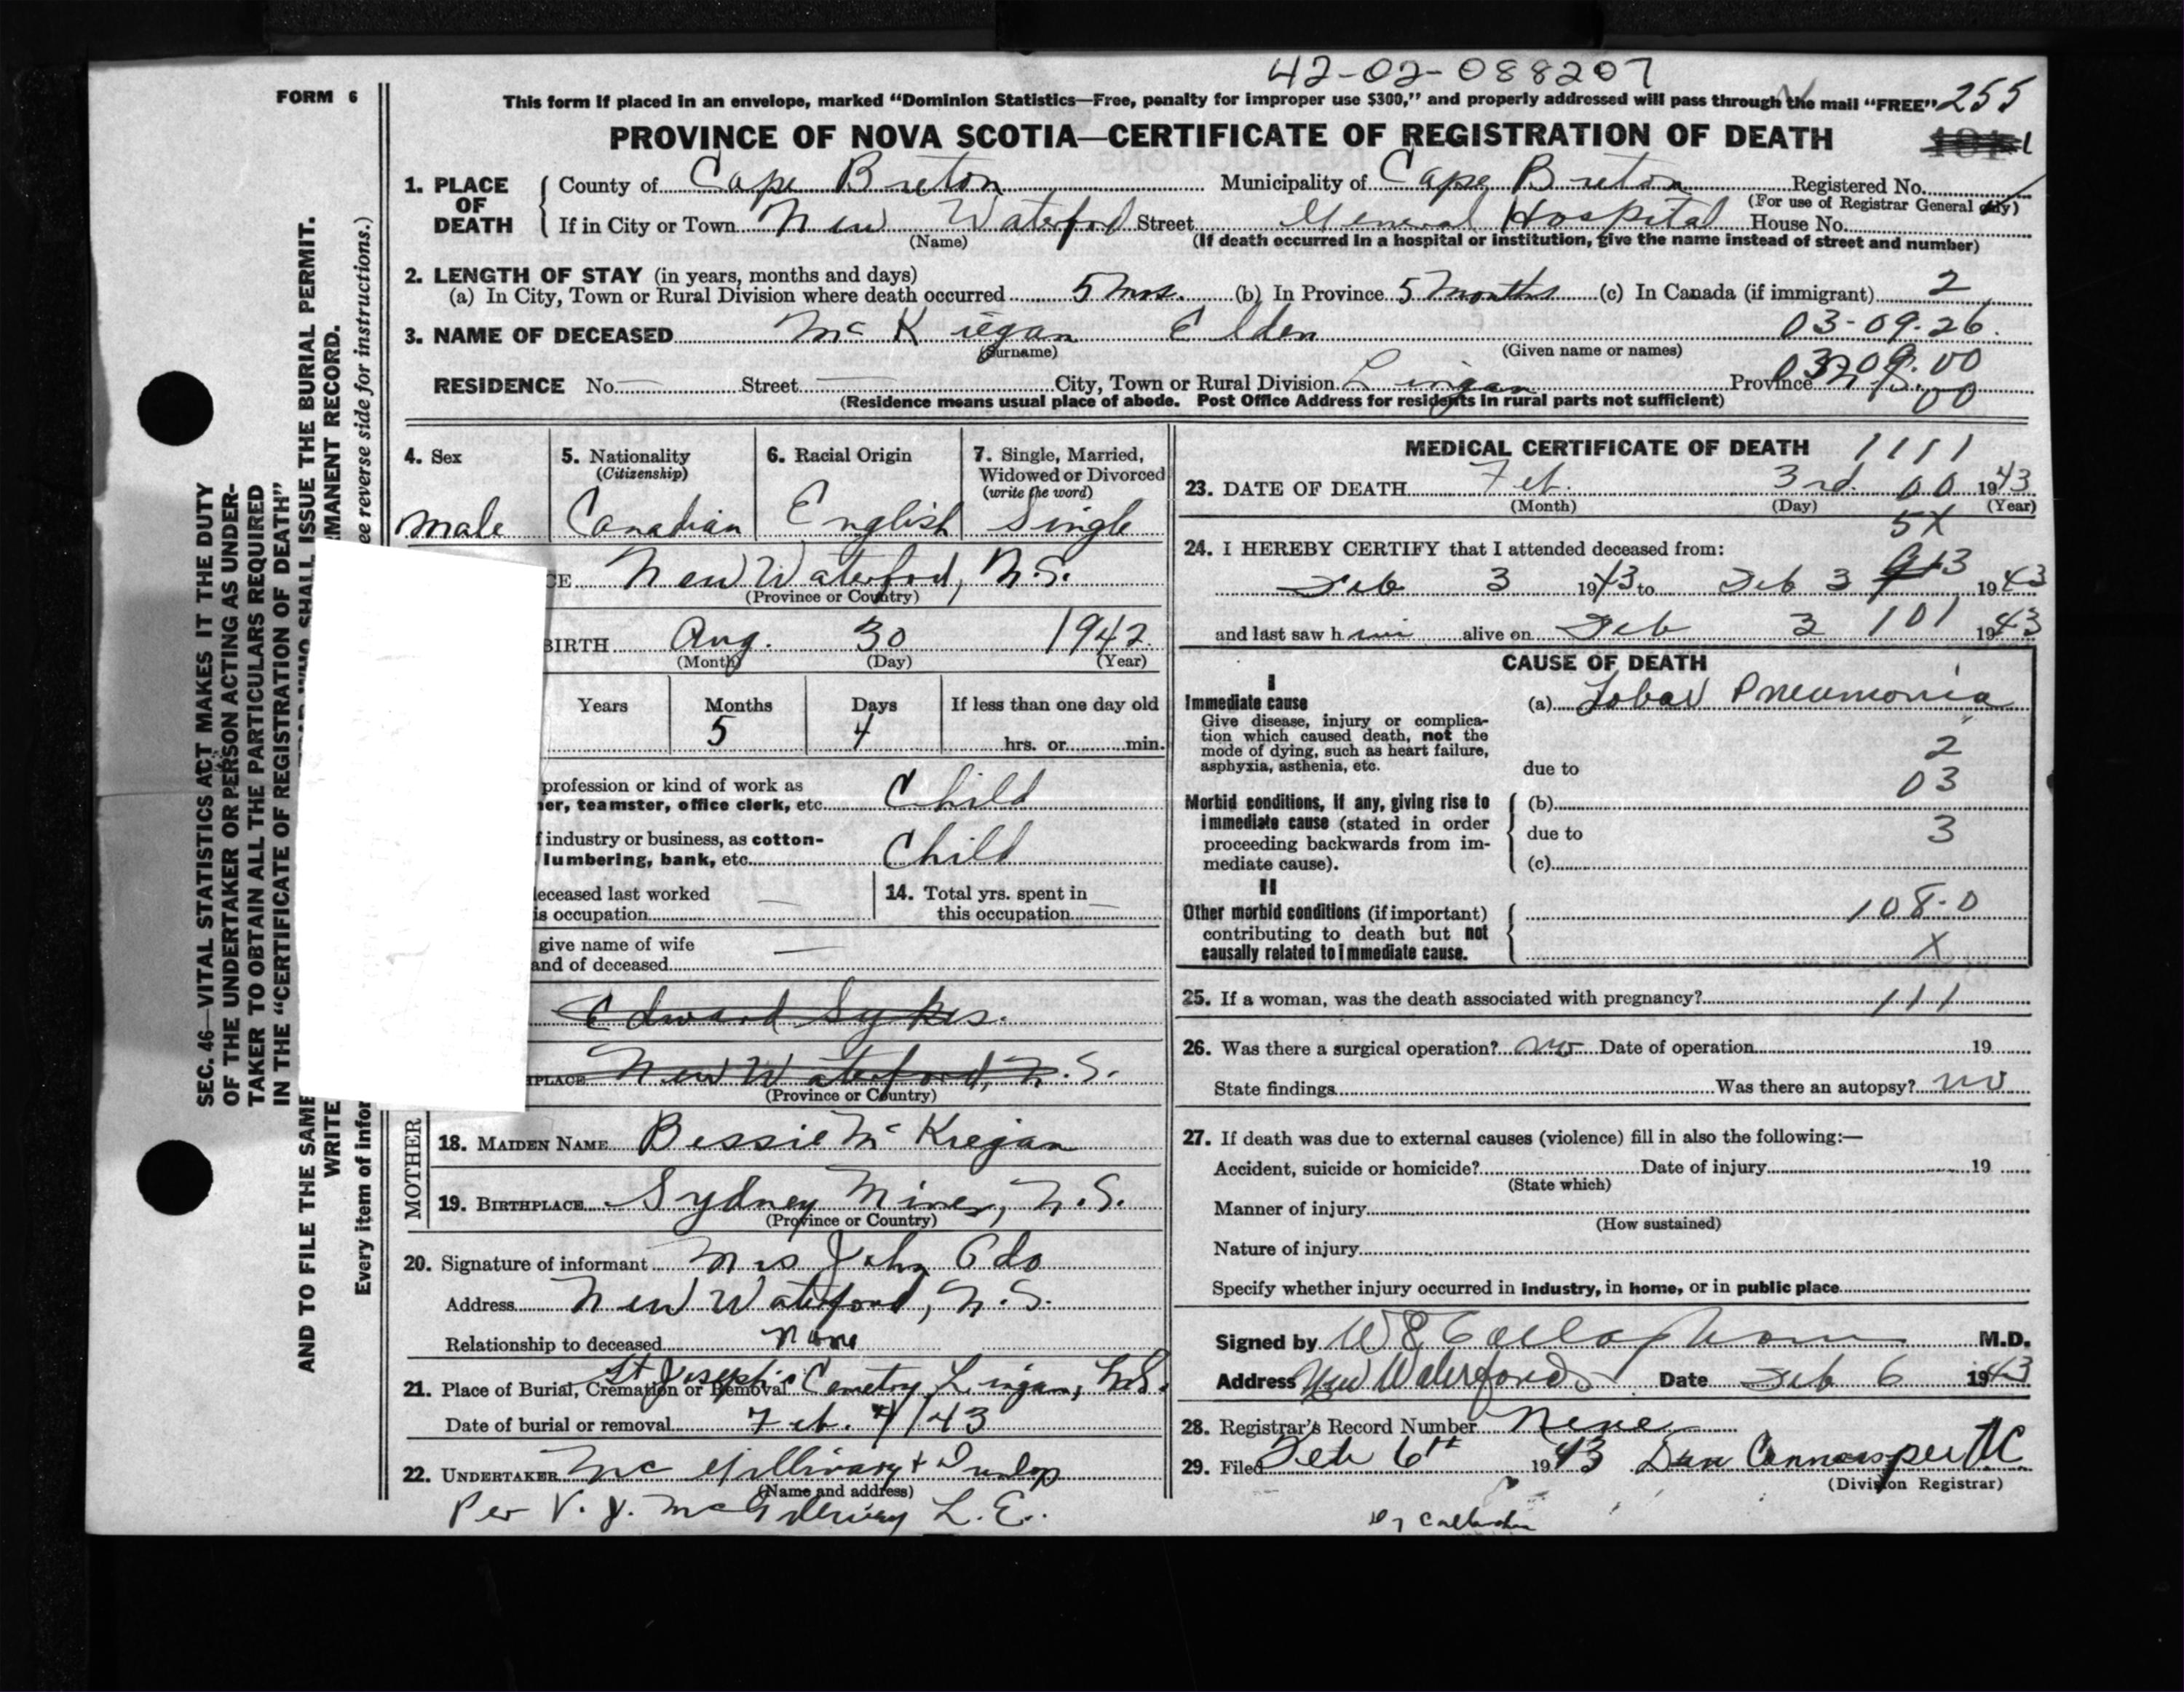 42-02-088207
FORM 6
This form if placed in an envelope, marked “Dominion Statistics—Free, penalty for improper use $300,” and properly addressed will pass through the mail “FREE” 255
PROVINCE OF NOVA SCOTIA—CERTIFICATE OF REGISTRATION OF DEATH
1. PLACE OF DEATH
County of Cape Breton Municipality of Cape Breton Registered No.
(For use of Registrar General only)
If in City or Town New Waterford Street General Hospital House No.
(Name) (If death occurred in a hospital or institution, give the name instead of street and number)
2. LENGTH OF STAY (in years, months and days)
(a) In City, Town or Rural Division where death occurred 5 Mos. (b) In Province 5 Months (c) In Canada (if immigrant) 2
3. NAME OF DECEASED McKiegan Elden 03-09-26.
(Surname) (Given name or names)
03-09.00
RESIDENCE No. — Street — City, Town or Rural Division Lingan Province N.S.
00
(Residence means usual place of abode. Post Office Address for residents in rural parts not sufficient)
4. Sex
male
5. Nationality
(Citizenship)
Canadian
6. Racial Origin
English
7. Single, Married,
Widowed or Divorced
(write the word)
Single
CE New Waterford, N.S.
(Province or Country)
BIRTH Aug. 30 1942
(Month) (Day) (Year)
Years Months Days If less than one day old
5 4 hrs. or min.
profession or kind of work as
ner, teamster, office clerk, etc. Child
f industry or business, as cotton-
lumbering, bank, etc. Child
eceased last worked —
is occupation
14. Total yrs. spent in —
this occupation
give name of wife —
and of deceased
Edward Sykes.
IPLACE New Waterford, N.S.
(Province or Country)
MOTHER
18. MAIDEN NAME Bessie McKiegan
19. BIRTHPLACE Sydney Mines, N.S.
(Province or Country)
20. Signature of informant Mrs John Odo
Address New Waterford, N.S.
Relationship to deceased None
21. Place of Burial, Cremation or Removal St Joseph's Cemetry Lingan, N.S.
Date of burial or removal Feb. 4/43
22. UNDERTAKER McGillivary & Dunlop
(Name and address)
Per V. J. McGillivray L.E.
MEDICAL CERTIFICATE OF DEATH 1111
23. DATE OF DEATH Feb. 3rd. 00 1943
(Month) (Day) (Year)
5X
24. I HEREBY CERTIFY that I attended deceased from:
Feb 3 1943 to Feb 3 1943
and last saw him alive on Feb 3 101 1943
CAUSE OF DEATH
I
Immediate cause
Give disease, injury or complica-
tion which caused death, not the
mode of dying, such as heart failure,
asphyxia, asthenia, etc.
(a) Lobar Pneumonia
2
due to
03
Morbid conditions, if any, giving rise to
immediate cause (stated in order
proceeding backwards from im-
mediate cause).
(b)
due to 3
(c)
II
Other morbid conditions (if important)
contributing to death but not
causally related to immediate cause.
108-0
X
25. If a woman, was the death associated with pregnancy? 111
26. Was there a surgical operation? no Date of operation 19
State findings Was there an autopsy? no
27. If death was due to external causes (violence) fill in also the following:—
Accident, suicide or homicide? Date of injury 19
(State which)
Manner of injury
(How sustained)
Nature of injury
Specify whether injury occurred in industry, in home, or in public place
Signed by W E Callaghan M.D.
Address New Waterford Date Feb 6 1943
28. Registrar's Record Number Nine
29. Filed Feb 6th 1943 Dan per
(Division Registrar)
Dr Callaghan
SEC. 46—VITAL STATISTICS ACT MAKES IT THE DUTY
OF THE UNDERTAKER OR PERSON ACTING AS UNDER-
TAKER TO OBTAIN ALL THE PARTICULARS REQUIRED
IN THE “CERTIFICATE OF REGISTRATION OF DEATH”
AND TO FILE THE SAME WHO SHALL ISSUE THE BURIAL PERMIT.
WRITE MANENT RECORD.
Every item of infor ee reverse side for instructions.)